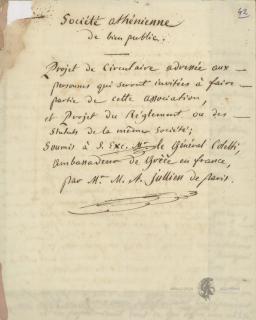 42
Société athénienne
de bien public.
Projet de Circulaire adressée aux
personnes qui seront invitées à faire
partie de cette association,
et Projet du Réglement ou des
Statuts de la même Société;
Soumis à S. Exc. Mr. le Général Coletti,
Ambassadeur de Grèce en france,
par Mr. M. A. Jullien de paris.